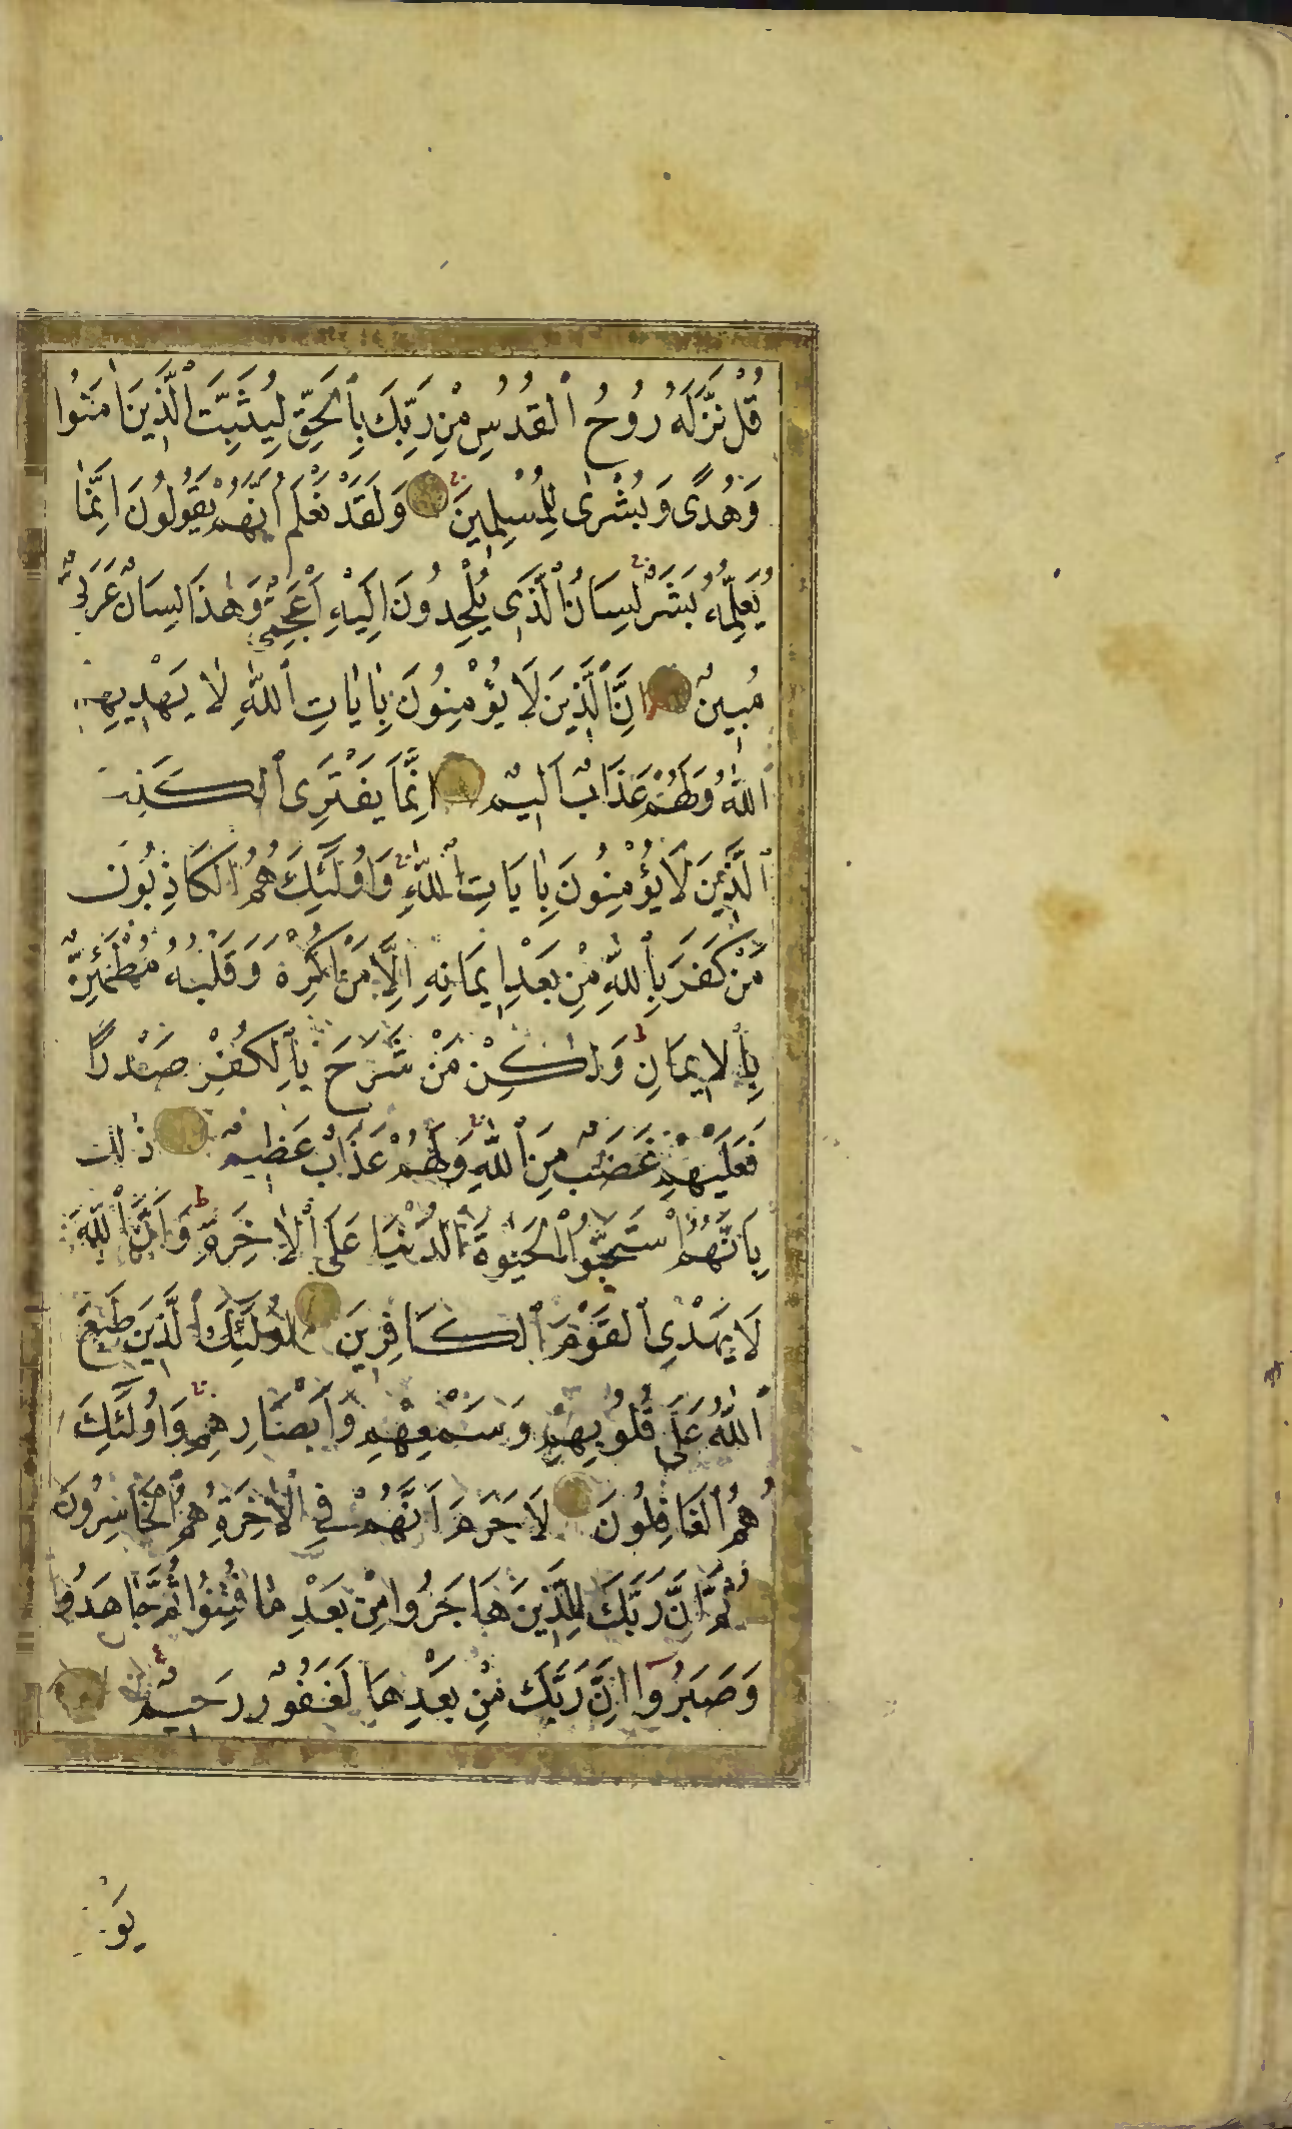 قُلْ نَزَّلَهُ رُوحُ ٱلْقُدُسِ مِنْ رَبِّكَ بِٱلْحَقِّ لِيُثَبِّتَ ٱلَّذِينَ اٰمَنُوا
وَهُدًى وَبُشْرٰى لِلْمُسْلِمِينَ وَلَقَدْ نَعْلَمُ اَنَّهُمْ يَقُولُونَ اِنَّمَا
يُعَلِّمُهُ بَشَرٌ لِسَانُ ٱلَّذِى يُلْحِدُونَ اِلَيْهِ اَعْجَمِىٌّ وَهٰذَا لِسَانٌ عَرَبِىٌّ
مُبِينٌ اِنَّ ٱلَّذِينَ لَا يُؤْمِنُونَ بِاٰيَاتِ ٱللّٰهِ لَا يَهْدِيهِمُ
ٱللّٰهُ وَلَهُمْ عَذَابٌ اَلِيمٌ اِنَّمَا يَفْتَرِى ٱلْكَذِبَ
ٱلَّذِينَ لَا يُؤْمِنُونَ بِاٰيَاتِ ٱللّٰهِ وَاُولٰٓئِكَ هُمُ ٱلْكَاذِبُونَ
مَنْ كَفَرَ بِٱللّٰهِ مِنْ بَعْدِ اِيمَانِهِ اِلَّا مَنْ اُكْرِهَ وَقَلْبُهُ مُطْمَئِنٌّ
بِٱلْاِيمَانِ ط وَلٰكِنْ مَنْ شَرَحَ بِٱلْكُفْرِ صَدْرًا
فَعَلَيْهِمْ غَضَبٌ مِنَ ٱللّٰهِ وَلَهُمْ عَذَابٌ عَظِيمٌ ذٰلِكَ
بِاَنَّهُمُ ٱسْتَحَبُّوا ٱلْحَيٰوةَ ٱلدُّنْيَا عَلَى ٱلْاٰخِرَةِ ط وَاَنَّ ٱللّٰهَ
لَا يَهْدِى ٱلْقَوْمَ ٱلْكَافِرِينَ اُولٰٓئِكَ ٱلَّذِينَ طَبَعَ
ٱللّٰهُ عَلٰى قُلُوبِهِمْ وَسَمْعِهِمْ وَاَبْصَارِهِمْ وَاُولٰٓئِكَ
هُمُ ٱلْغَافِلُونَ لَا جَرَمَ اَنَّهُمْ فِى ٱلْاٰخِرَةِ هُمُ ٱلْخَاسِرُونَ
ثُمَّ اِنَّ رَبَّكَ لِلَّذِينَ هَاجَرُوا مِنْ بَعْدِ مَا فُتِنُوا ثُمَّ جَاهَدُوا
وَصَبَرُوٓا اِنَّ رَبَّكَ مِنْ بَعْدِهَا لَغَفُورٌ رَحِيمٌ